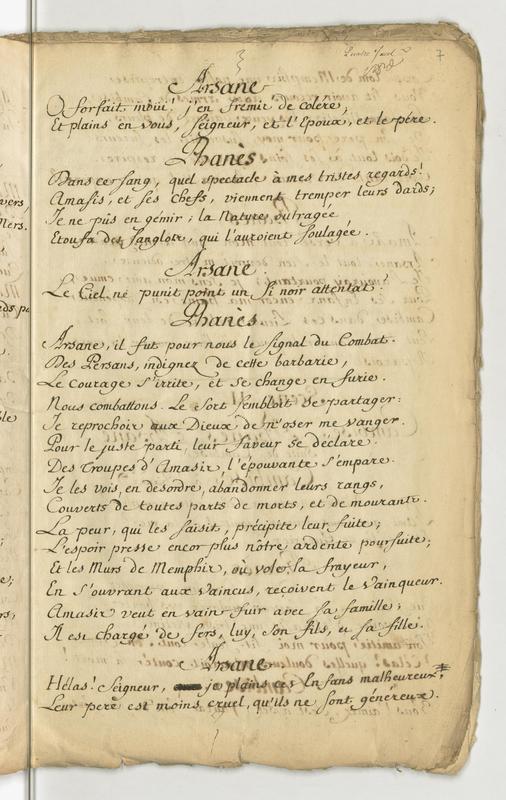 7
Arsane
O forfait inoüi! j'en frémie de colére,
Et plains en vous, Seigneur, et l'Epoux, et le pére.
Phanès
Dans ce sang, quel spectacle à mes tristes regards!
Amasis, et ses chefs, viennent tremper leurs dards;
Je ne pûs en gémir; la Nature outragée
Etoufa des Sanglots, qui l'auroient soulagée.
Arsane.
Le Ciel ne punit point un si noir attentat!
Phanès
Arsane, il fut pour nous le signal du Combat.
Des Persans, indignez de cette barbarie,
Le Courage s'irrite, et se change en furie.
Nous combattons. Le Sort sembloit se partager:
Je reprochois aux Dieux de n'oser me vanger.
Pour le juste parti, leur faveur se déclare.
Des Troupes d'Amasis, l'épouvante s'empare.
Je les vois, en desordre, abandonner leurs rangs,
Couverts de toutes parts de morts, et de mourants.
La peur, qui les saisit, précipite leur fuite;
L'espoir presse encor plus nôtre ardente poursuite;
Et les Murs de Memphis, où vole la frayeur,
En s'ouvrant aux Vaincus, reçoivent le Vainqueur.
Amasis veut en vain fuir avec sa famille;
Il est chargé de fers, luy, son fils, et sa fille.
Arsane
Hélas! Seigneur, je plains ces Enfans malheureux;
Leur pere est moins cruel, qu'ils ne sont généreux.